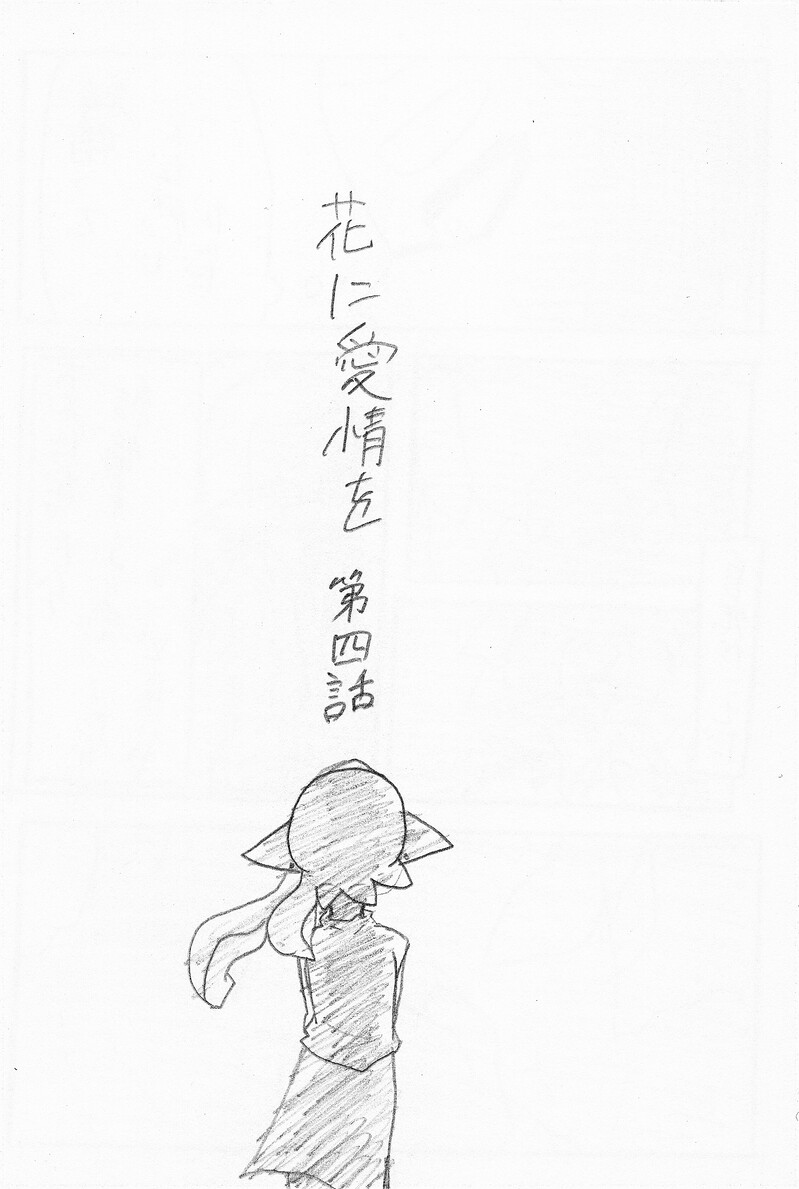 花に愛情を 第四話